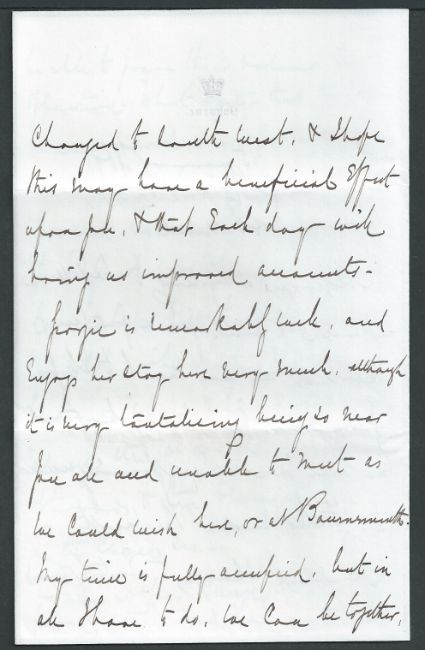 changed to South West. & I hope
this may have a beneficial Effect
upon you, & that Each day will
bring us improved accounts -
is remarkably well, and
Enjoys her stay here very much, although
it is very tantalising being so near
you all and unable to meet as
we could wish here, or at Bournemouth.
My time is fully occupied, but in
all I have to do, we can be together,